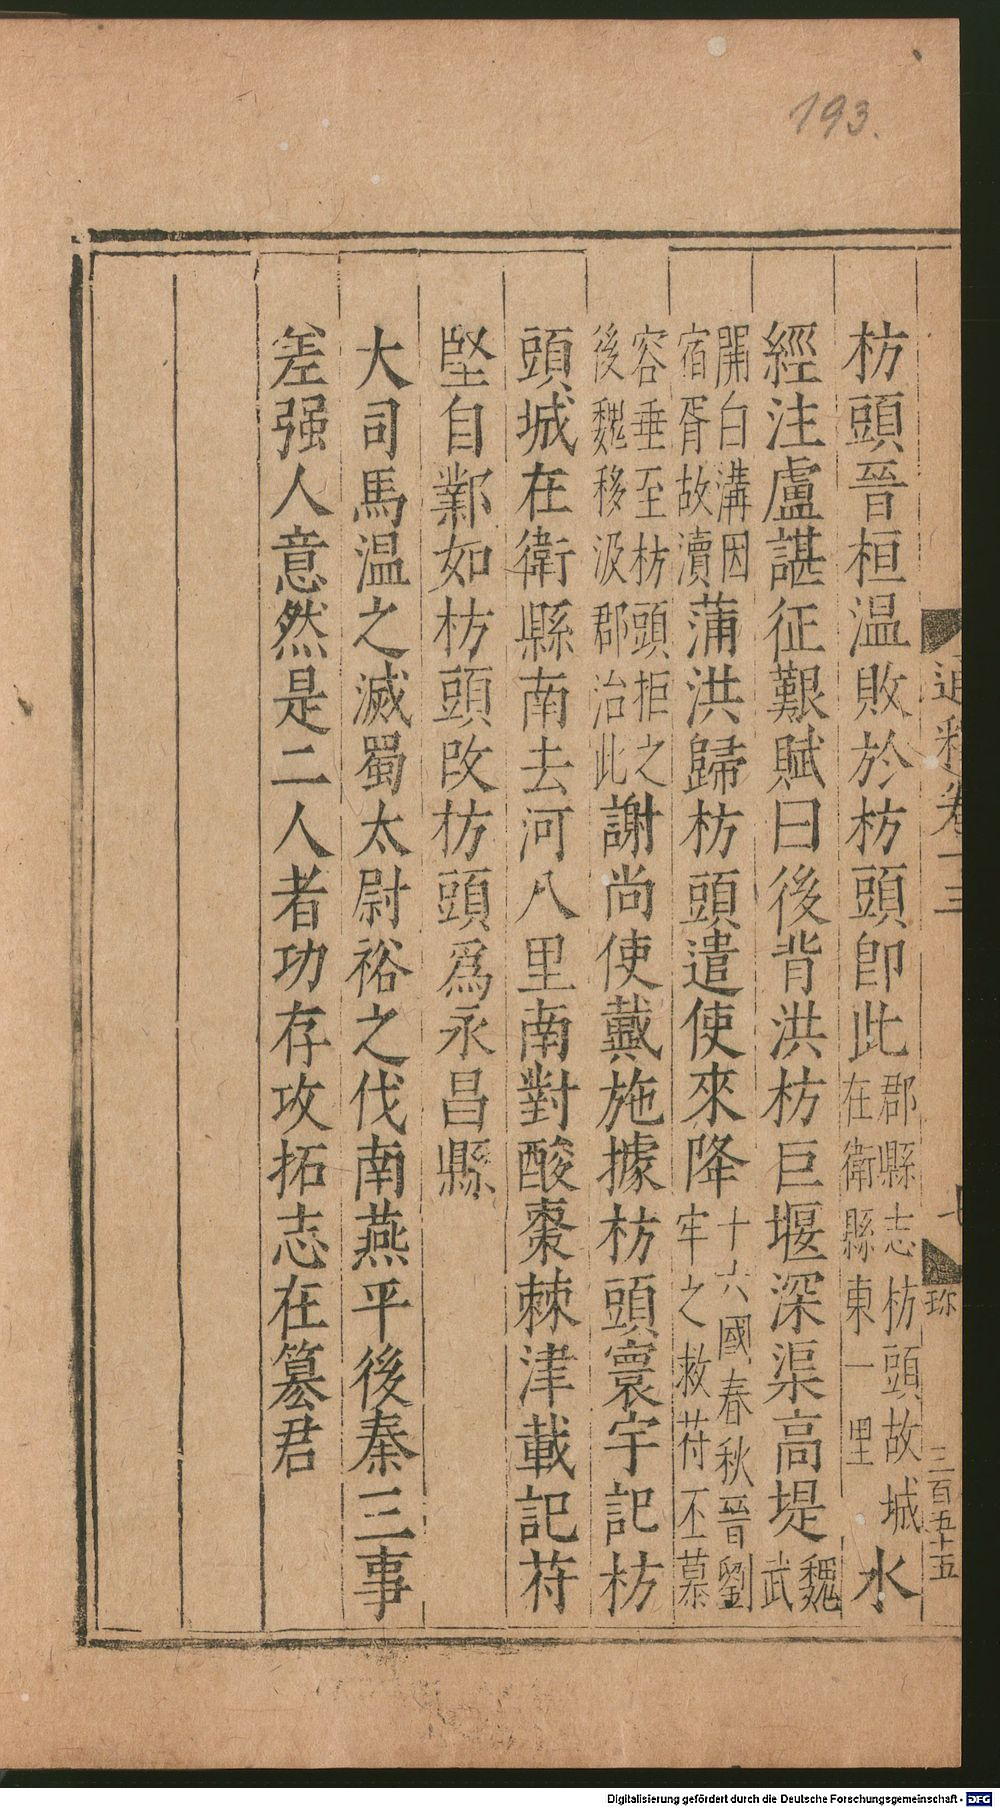 193.
通釋卷十三
七
珎
三百五十五
枋頭晉桓温敗於枋頭卽此郡縣志枋頭故城在衛縣東一里水
經注盧諶征艱賦曰後背洪枋巨堰深渠高堤魏武
開白溝因宿胥故瀆蒲洪歸枋頭遣使來降十六國春秋晉劉牢之救苻丕慕
容垂至枋頭拒之後魏移汲郡治此謝尚使戴施據枋頭寰宇記枋
頭城在衛縣南去河八里南對酸棗棘津載記苻
堅自鄴如枋頭改枋頭爲永昌縣
大司馬温之滅蜀太尉裕之伐南燕平後秦三事
差强人意然是二人者功存攻拓志在簒君
Digitalisierung gefördert durch die Deutsche Forschungsgemeinschaft - DFG